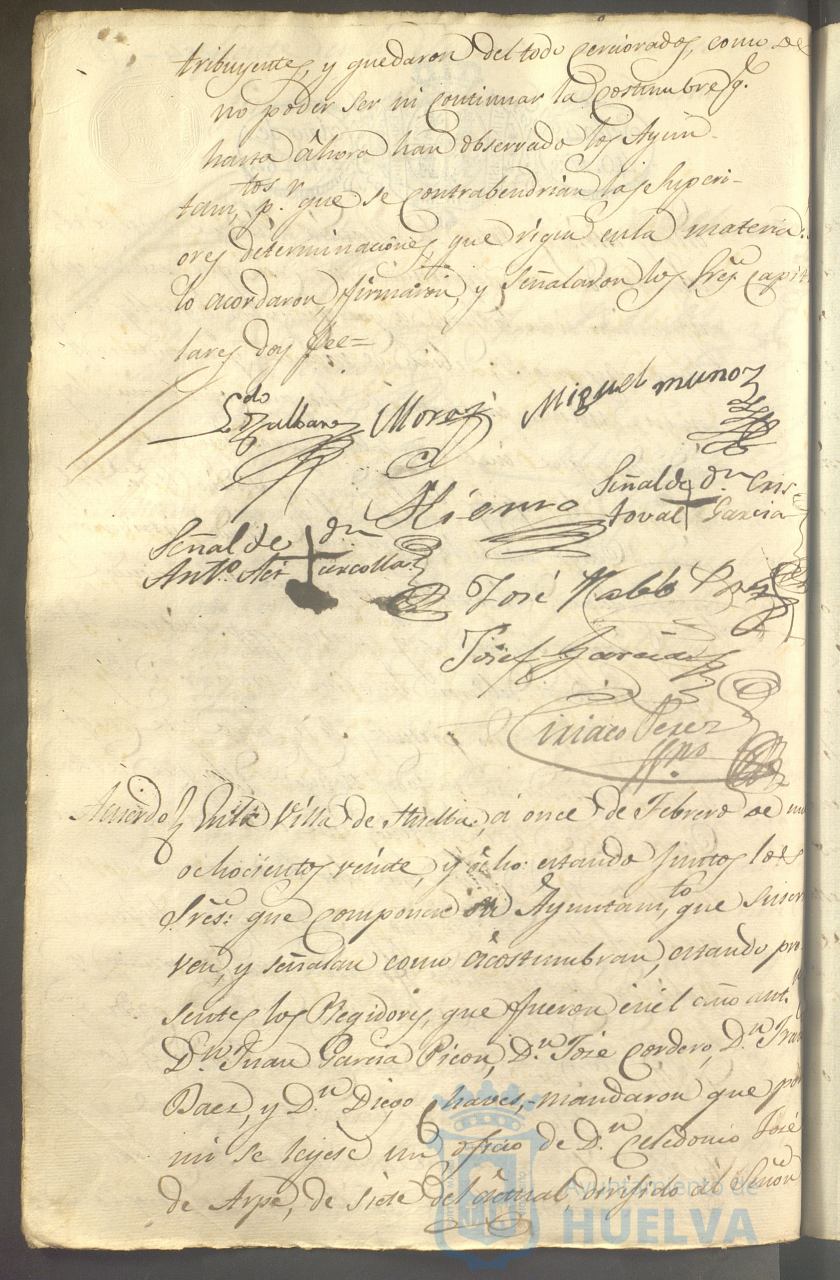 tribuyentes, y quedaron del todo cerciorados, como de
no poder ser ni continuar la costumbre q.e
hasta ahora han observado los Ayun-
tam.tos, p.r que se contrabendrian las Superi-
ores determinaciones, que rigen en la materia:
lo acordaron, firmaron, y señalaron los Sres. capitu
lares doy fee=
Ldo Moraz Miguel munoz
Señal de dn Cris-
toval Garcia
Señal de dn
Anto.
José Perez
Josef Garcia
Ciriaco Perez
Ssno
Acuerdo En la Villa de Huelba, á once de Febrero de mil
ochocientos veinte, y ocho: estando juntos los
Sres: que componen su Ayuntam.to, que suscri
ven, y señalan como acostumbran, estando pre-
sentes los Regidores, que fueron en el año ant.r
D.n Juan Garcia Picon, D.n José Cordero, D.n Fran
Baez, y D.n Diego Chaves,- mandaron que por
mi se leyese un oficio de D.n Celedonio José
de Arpe, de siete del actual, dirijido al Señor
Ayuntamiento de
HUELVA